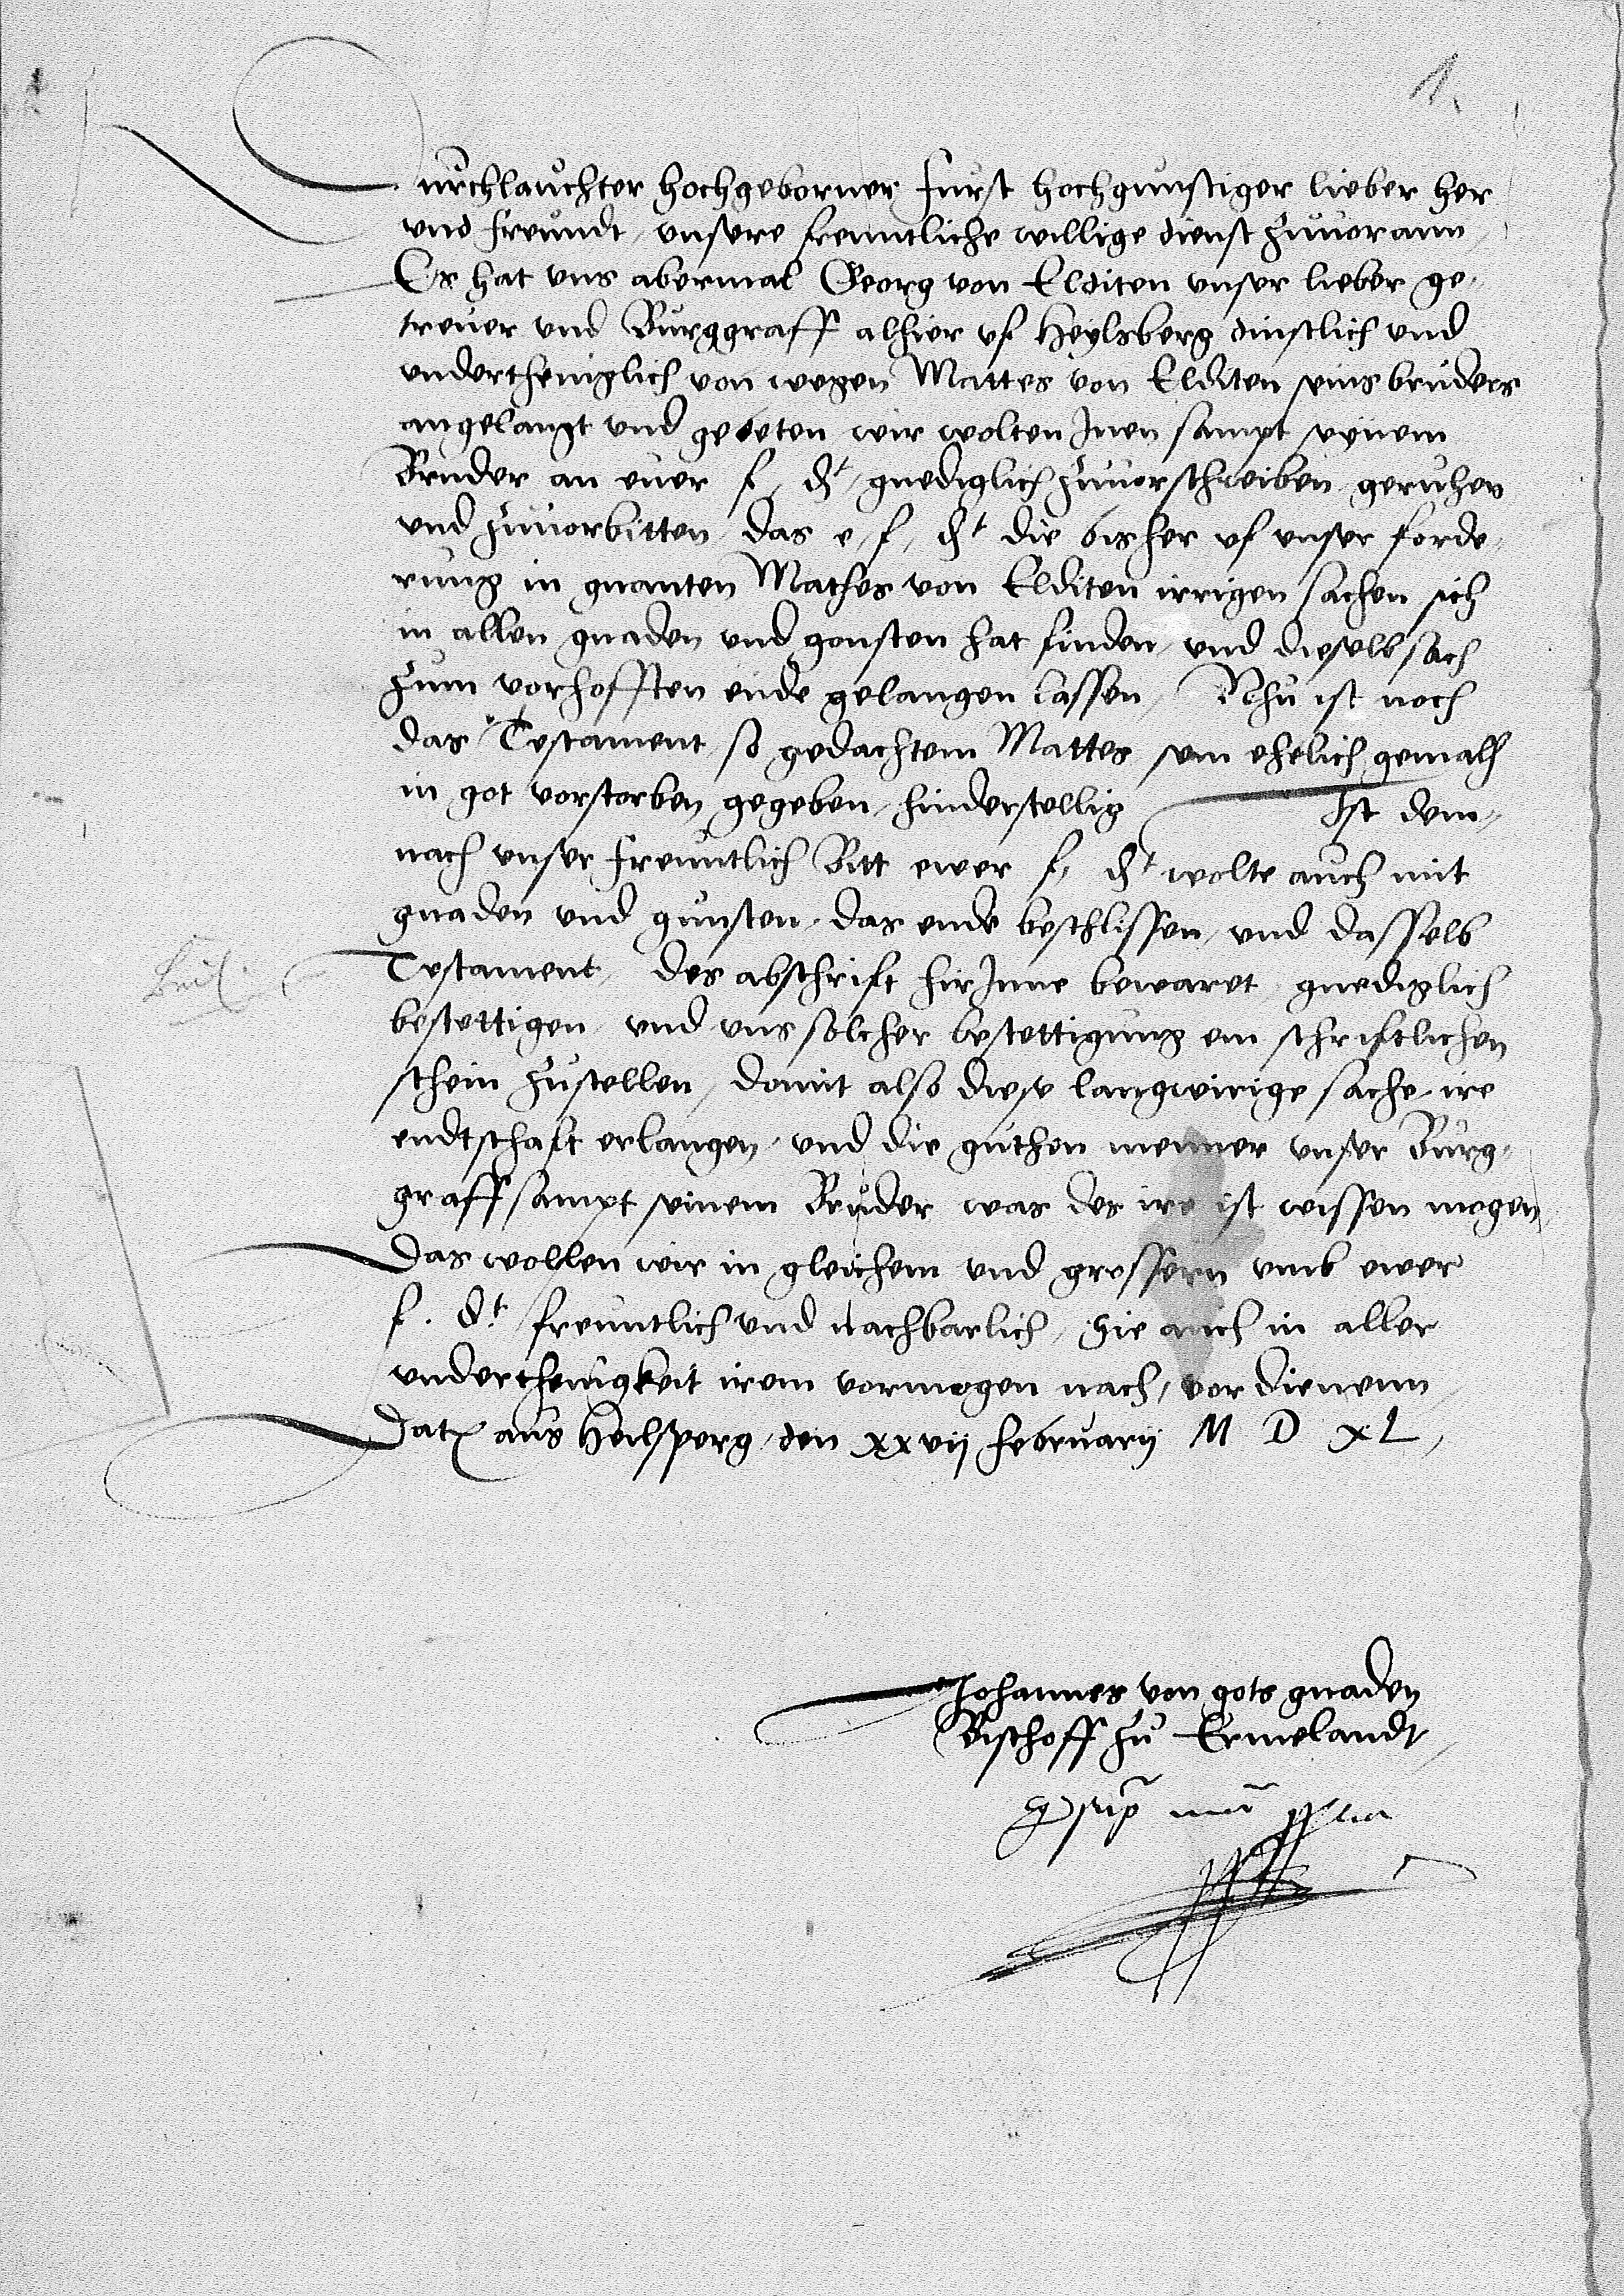 1.
Durchlauchter hochgeborner furst hochgunstiger lieber her
und freundt, unsere freuntliche willige dienst zuuorann,
Es hat uns abermal Georg von Elditen unser lieber ge,
treuer und Burggraff alhier uf Heylsberg dinstlich und
undertheniglich von wegen Mattes von Elditen seins bruders
angelangt und gebeten wir wolten Inen sampt seynem
Bruder an euer f, dt, gnediglich zuuorschreiben geruhen
und zuuorbitten, das e, f, dt die bisher uf unser forde,
rung in gnanten Mathes von Elditen irrigen sachen sich
in allen gnaden und gonsten hat finden, und dieselb sach
zum vorhofften ende gelangen lassen, Nhu ist noch
das Testament, so gedachtem Mattes sein ehelich gemalh
in got vorstorben gegeben, hinderstellig Ist dem,
nach unser freuntlich Bitt ewer f, dt wolte auch mit
gnaden und gunsten, das ende beschlissen, und dasselb
Testament, des abschrift hir Inne bewaret, gnediglich
bestettigen, und uns solcher bestettigung ein schriftlichen
schein zustellen, domit also diese langwirige sache ire
endtschaft erlangen, und die guthen menner unser Burg,
graff sampt seinem Bruder was des ire ist wissen mogen
Das wollen wir in gleichem und grossern umb ewer
f. dt. freuntlich und nachbarlich, Sie auch in aller
underthenigkeit irem vormogen nach, vor dienenn,
Dat aus Heilsperg, den xxvij february M D XL,
Johannes von gots gnaden
Bischoff zu Ermelandt,